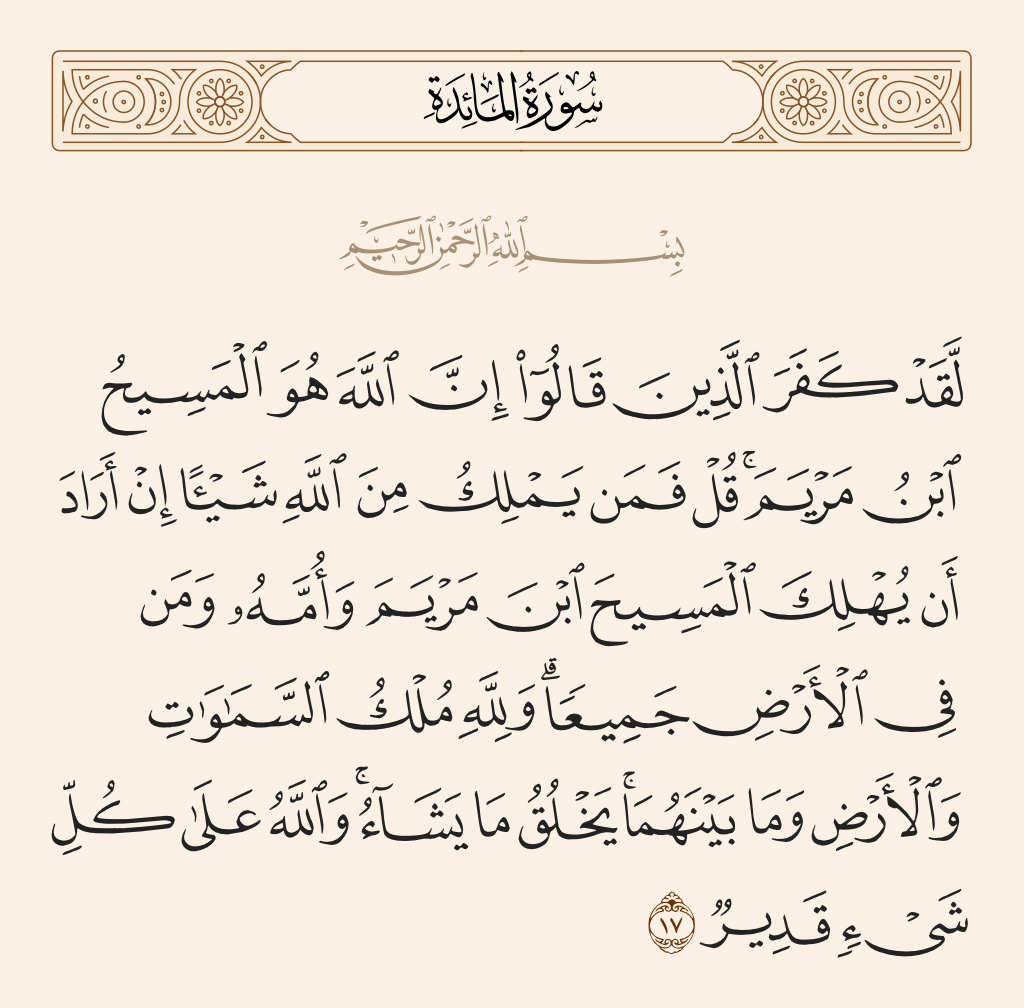 سُورَةُ المَائِدَةِ
بِسْمِ ٱللَّهِ ٱلرَّحْمَٰنِ ٱلرَّحِيمِ
لَّقَدْ كَفَرَ ٱلَّذِينَ قَالُوٓا۟ إِنَّ ٱللَّهَ هُوَ ٱلْمَسِيحُ
ٱبْنُ مَرْيَمَ ۚ قُلْ فَمَن يَمْلِكُ مِنَ ٱللَّهِ شَيْـًٔا إِنْ أَرَادَ
أَن يُهْلِكَ ٱلْمَسِيحَ ٱبْنَ مَرْيَمَ وَأُمَّهُۥ وَمَن
فِى ٱلْأَرْضِ جَمِيعًا ۗ وَلِلَّهِ مُلْكُ ٱلسَّمَٰوَٰتِ
وَٱلْأَرْضِ وَمَا بَيْنَهُمَا ۚ يَخْلُقُ مَا يَشَآءُ ۚ وَٱللَّهُ عَلَىٰ كُلِّ
شَىْءٍ قَدِيرٌ ١٧